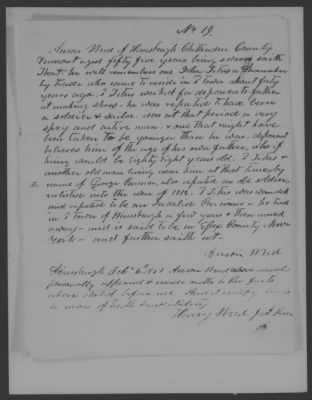 No 19.
Anson Weed of Hinesburgh Chittenden County
Vermont aged fifty five years being sworn saith
that he well remembers one John Titus a shoemaker
by trade who came to reside in town about forty
years ago. J Titus worked for deponents father
at making shoes - he was reputed to have been
a soldier & sailor was at that period a very
spry and active man - & one that might have
been taken to be younger than he was - deponent
believes him of the age of his own father, who if
living would be Eighty eight years old. J Titus &
another old man living near him at that time by
name of George Palmer, also reputed an old soldier,
enlisted into the war of 1812 - J Titus was wounded
and reputed to be an Invalid Pensioner - he lived
in J Town of Hinesburgh a few years & then moved
away - and is said to be in Essex County New
York - and further saith not.
Anson Weed
Hinesburgh Feb. 6th 1861 Anson Weed above named
personally appeared & made oath to the facts
above stated before me And I certify he is
a man of truth & credibility
Henry Weed Just Peace